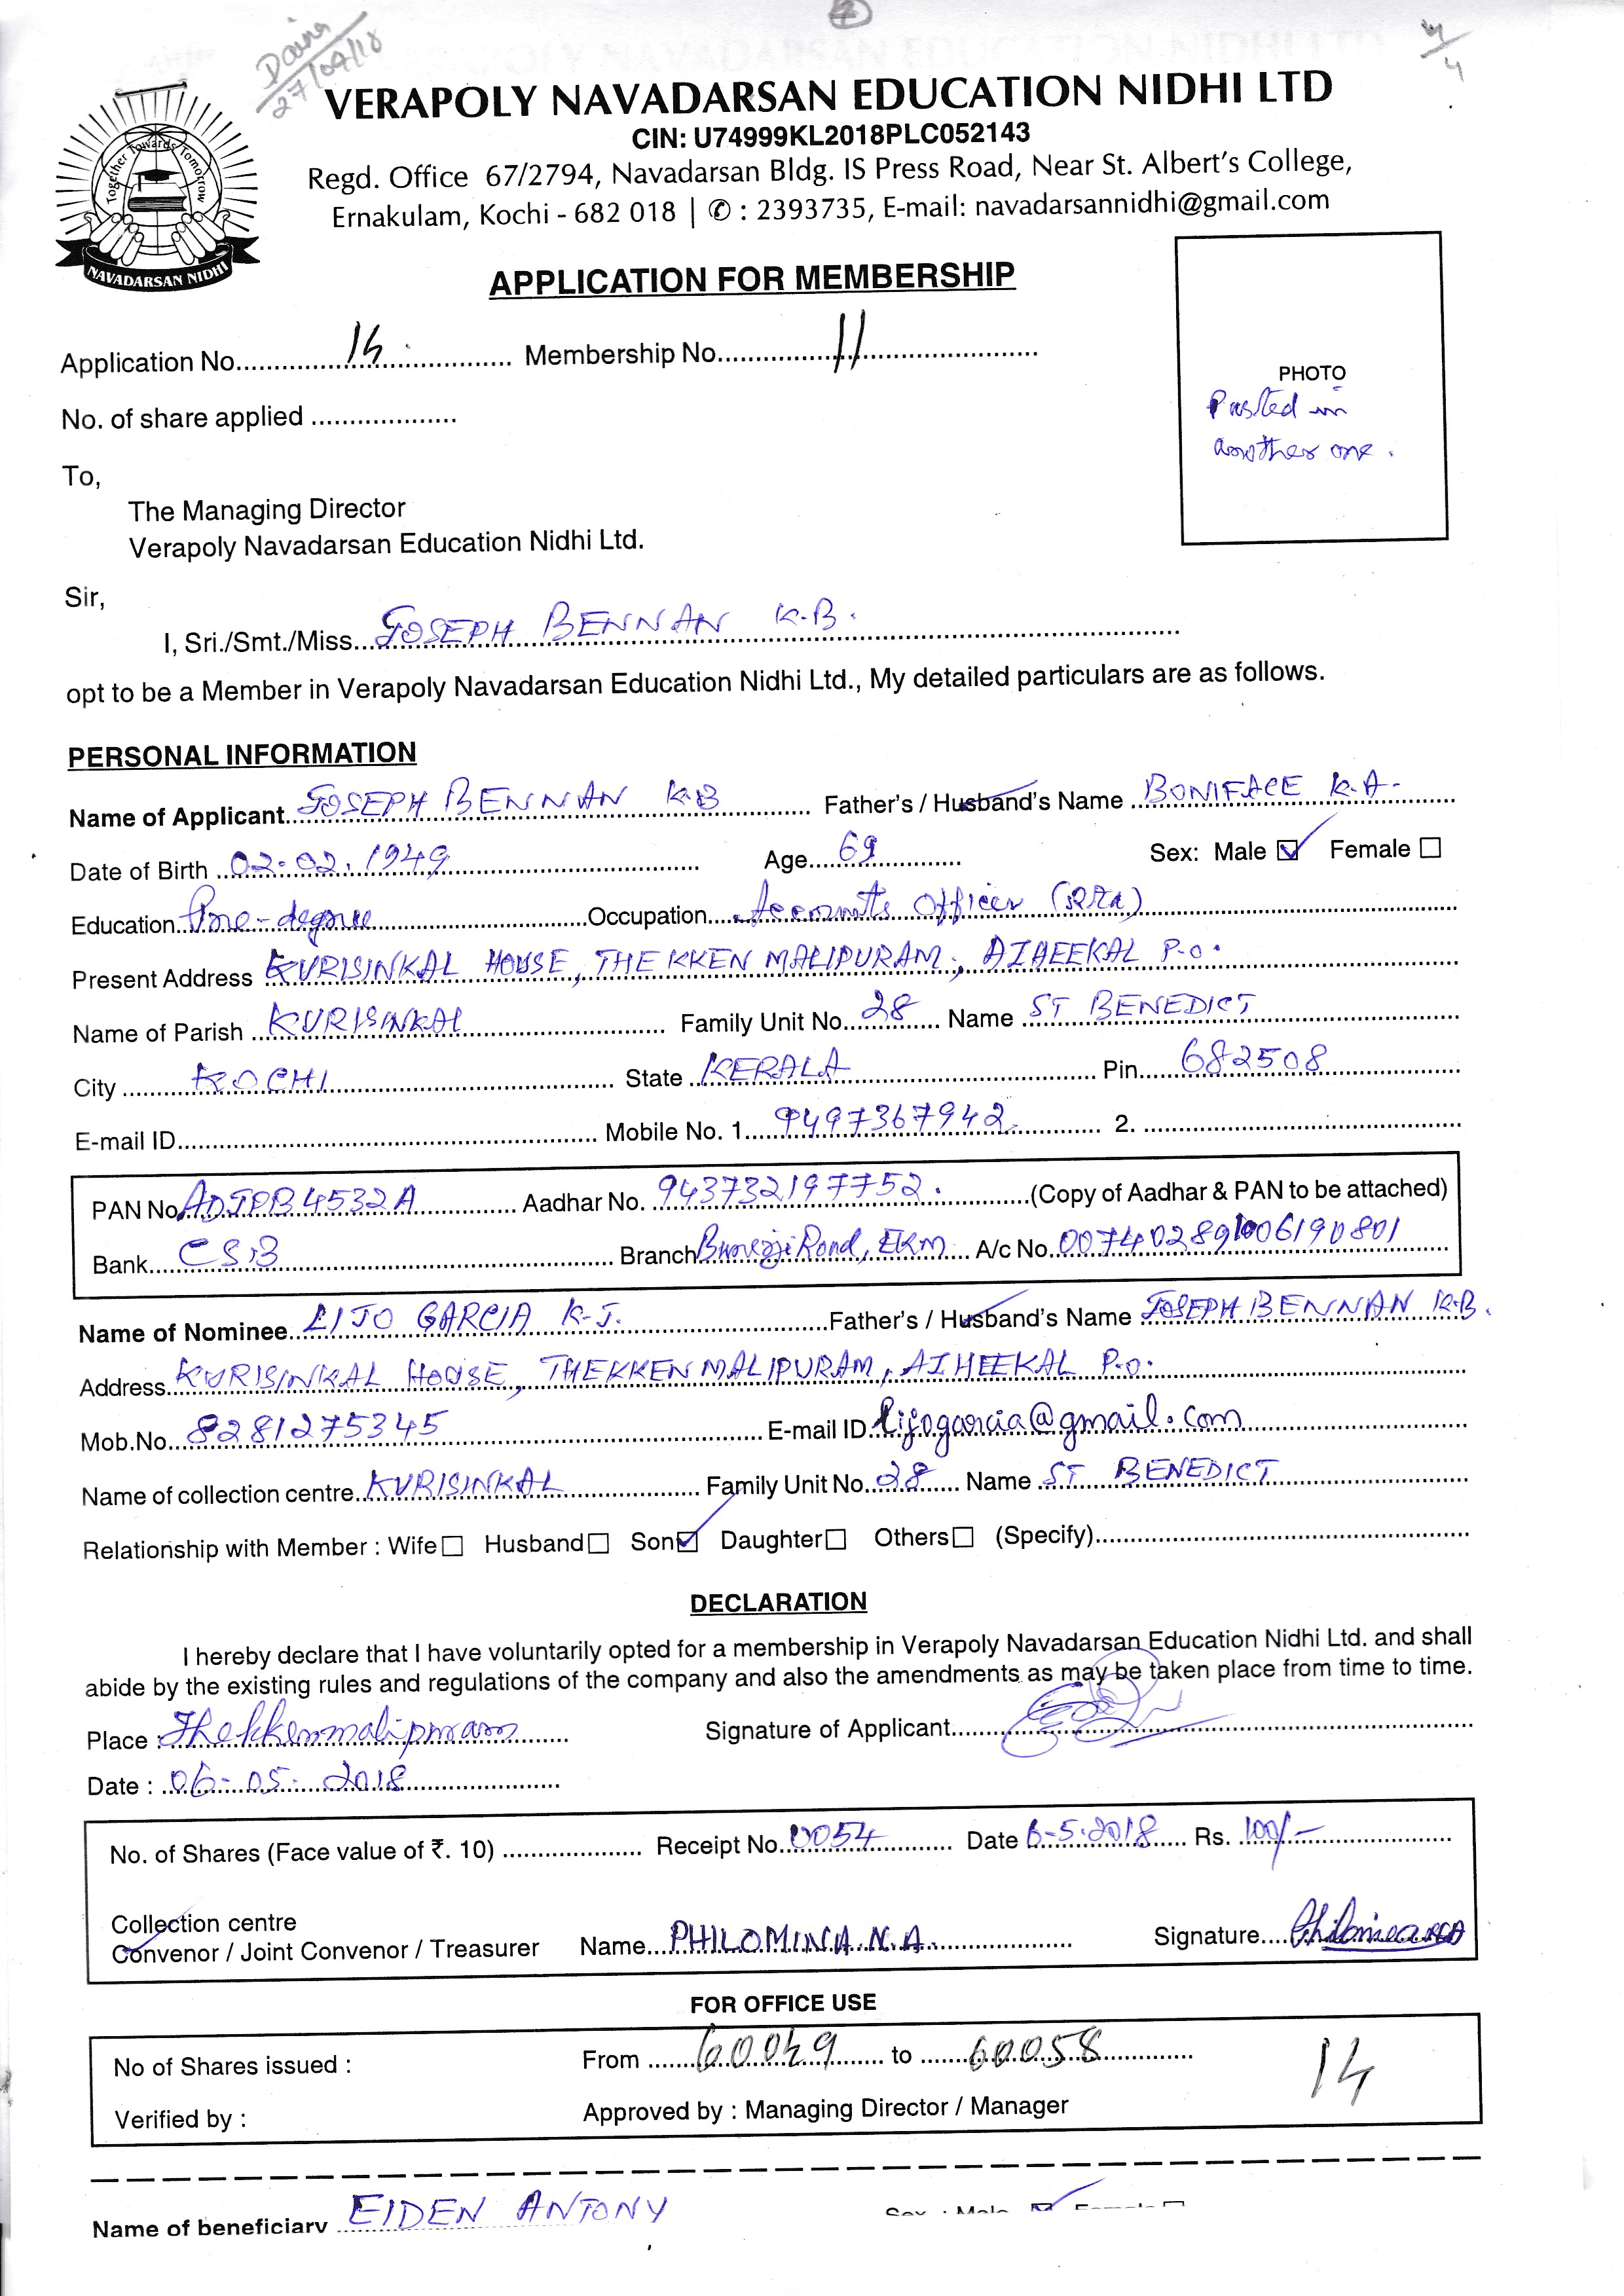 Daina
27/09/18
2
4/4
VERAPOLY NAVADARSAN EDUCATION NIDHI LTD
CIN: U74999KL2018PLC052143
Regd. Office 67/2794, Navadarsan Bldg. IS Press Road, Near St. Albert's College,
Ernakulam, Kochi - 682 018 | ✆ : 2393735, E-mail: navadarsannidhi@gmail.com
Together Towards Tomorrow
NAVADARSAN NIDHI
APPLICATION FOR MEMBERSHIP
Application No. 14 Membership No. 11
No. of share applied
PHOTO
Pasted in
another one.
To,
The Managing Director
Verapoly Navadarsan Education Nidhi Ltd.
Sir,
I, Sri./Smt./Miss. JOSEPH BENNAN K.B.
opt to be a Member in Verapoly Navadarsan Education Nidhi Ltd., My detailed particulars are as follows.
PERSONAL INFORMATION
Name of Applicant JOSEPH BENNAN K.B Father's / Husband's Name BONIFACE K.A-
Date of Birth 02-02.1949 Age 69 Sex: Male ☑ Female ☐
Education Pre-degree Occupation Accounts Officer (Rtd)
Present Address KURISINKAL HOUSE, THEKKEN MALIPURAM, AZHEEKAL P.O.
Name of Parish KURISINKAL Family Unit No. 28 Name ST BENEDICT
City KOCHI State KERALA Pin 682508
E-mail ID Mobile No. 1 9497367942 2.
PAN No. ADJPB4532A Aadhar No. 943732197752. (Copy of Aadhar & PAN to be attached)
Bank CSB Branch Road, EKM A/c No.
Name of Nominee LIJO GARCIA K.J. Father's / Husband's Name JOSEPH BENNAN K.B.
Address KURISINKAL HOUSE, THEKKENMALIPURAM, AZHEEKAL P.O.
Mob.No. 8281275345 E-mail ID lijogarcia@gmail.com
Name of collection centre KURISINKAL Family Unit No. 28 Name ST BENEDICT
Relationship with Member : Wife ☐ Husband ☐ Son ☑ Daughter ☐ Others ☐ (Specify)
DECLARATION
I hereby declare that I have voluntarily opted for a membership in Verapoly Navadarsan Education Nidhi Ltd. and shall
abide by the existing rules and regulations of the company and also the amendments as may be taken place from time to time.
Place : Thekkenmalipuram Signature of Applicant
Date : 06-05-2018
No. of Shares (Face value of ₹. 10) Receipt No. 0054 Date 6-5-2018 Rs. 100/-
Collection centre
Convenor / Joint Convenor / Treasurer Name PHILOMINA.N.A. Signature
FOR OFFICE USE
No of Shares issued : From 60049 to 60058
14
Verified by : Approved by : Managing Director / Manager
Name of beneficiary EIDEN ANTONY Sex : Male ☑ Female ☐